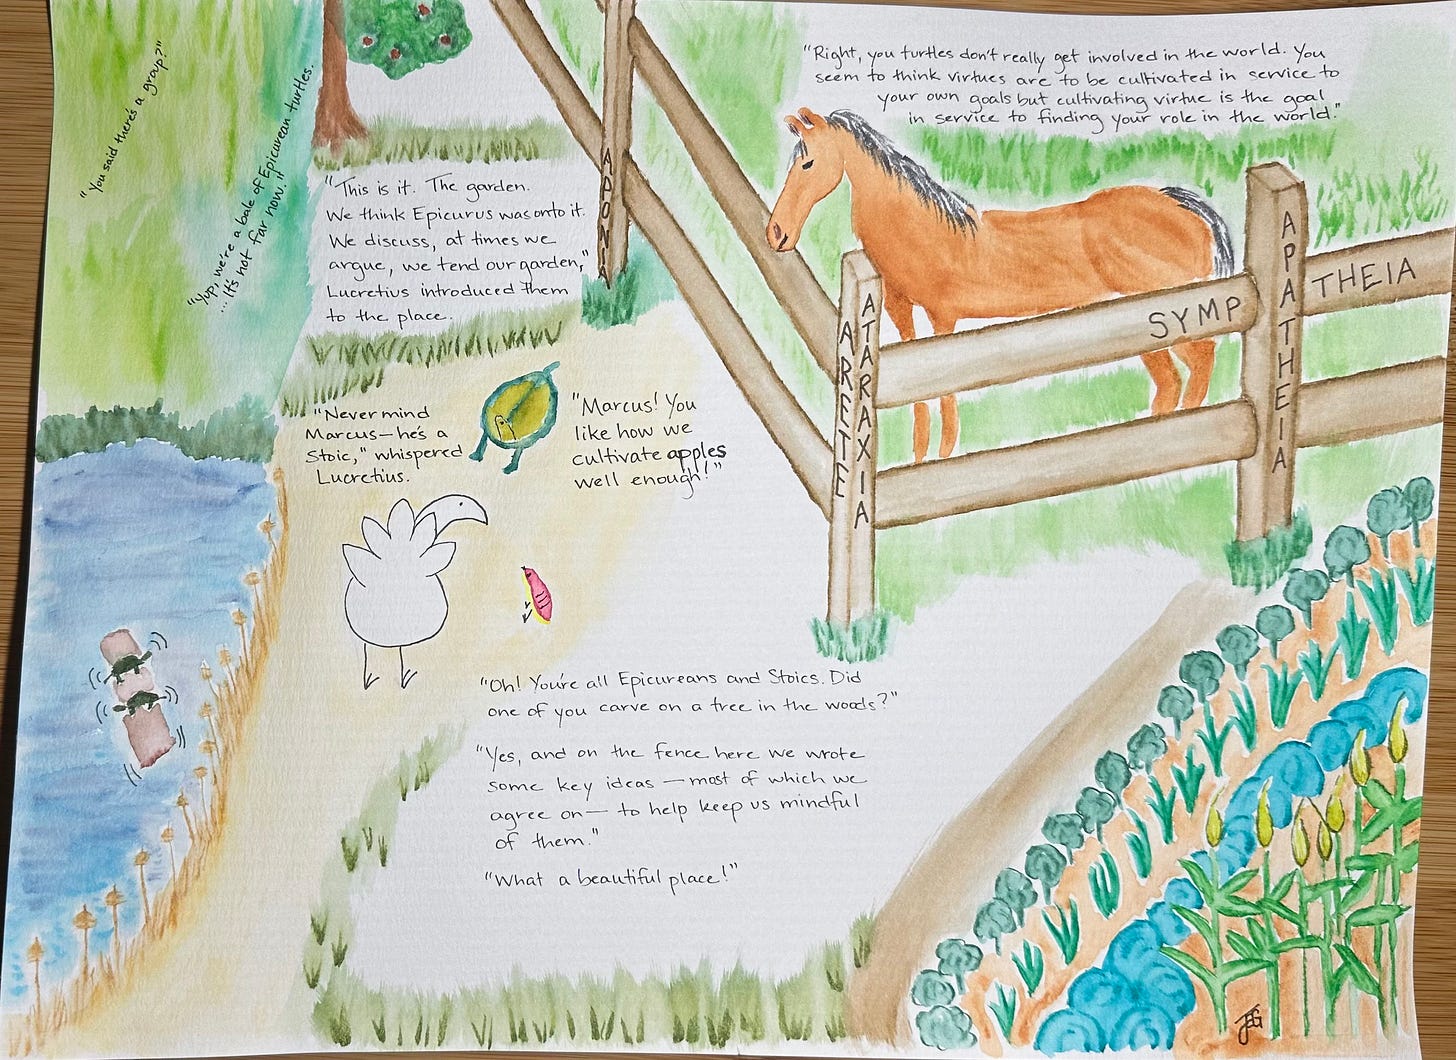 "You said there's a group?"
"Yup, we're a bale of Epicurean turtles.
...it's not far now."
"This is it. The garden.
We think Epicurus was onto it.
We discuss, at times we
argue, we tend our garden,"
Lucretius introduced them
to the place.
"Right, you turtles don't really get involved in the world. You
seem to think virtues are to be cultivated in service to
your own goals but cultivating virtue is the goal
in service to finding your role in the world."
ADONIA
ARETE
ATARAXIA
SYMP
APATHEIA
THEIA
"Never mind
Marcus—he's a
Stoic," whispered
Lucretius.
"Marcus! You
like how we
cultivate apples
well enough!"
"Oh! You're all Epicureans and Stoics. Did
one of you carve on a tree in the woods?"
"Yes, and on the fence here we wrote
some key ideas—most of which we
agree on—to help keep us mindful
of them."
"What a beautiful place!"
JEG